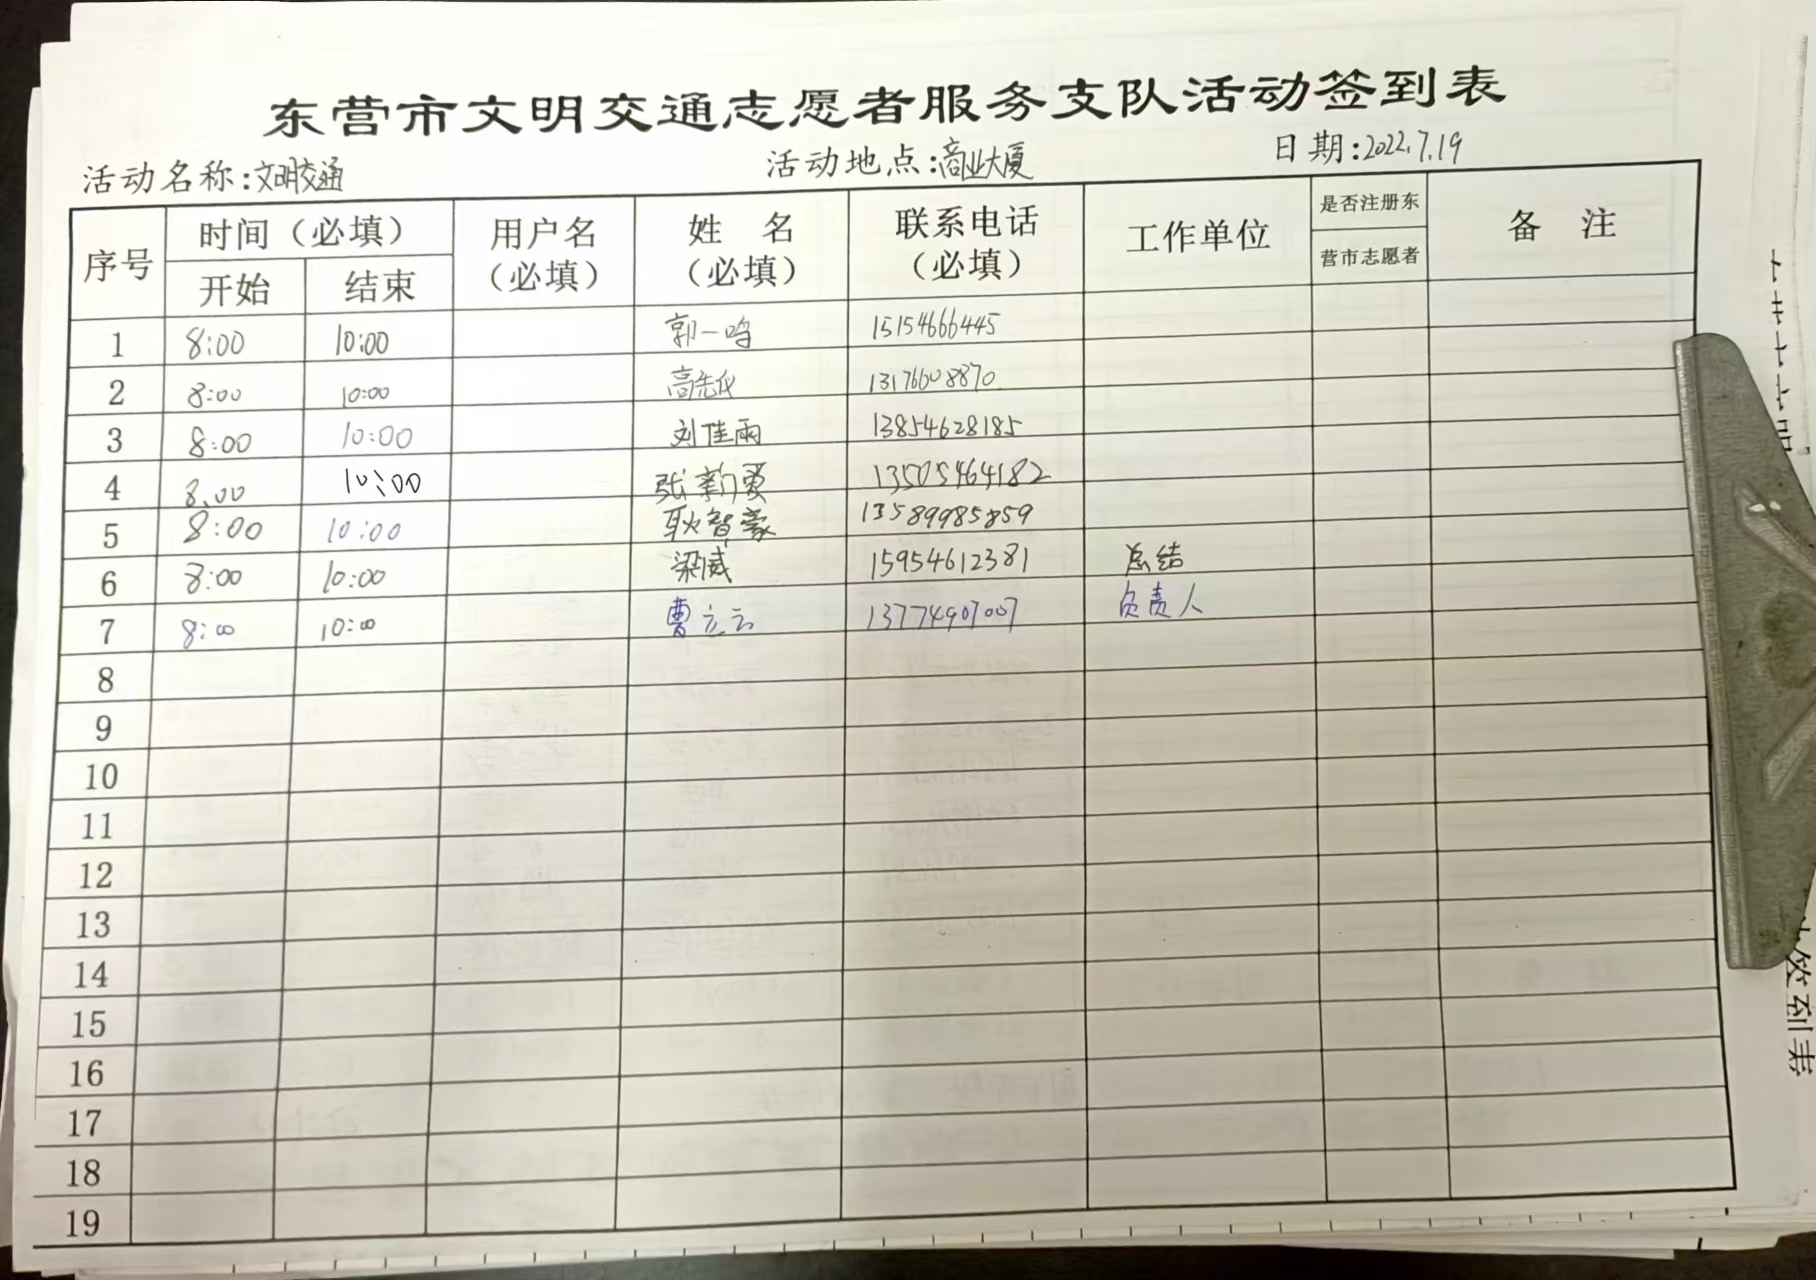 东营市文明交通志愿者服务支队活动签到表
活动名称:文明交通 活动地点:商业大厦 日期:2022.7.19
序号 时间（必填） 用户名（必填） 姓 名（必填） 联系电话（必填） 工作单位 是否注册东营市志愿者 备 注
开始 结束
1 8:00 10:00 郭一鸣 15154666445
2 8:00 10:00 13176608870
3 8:00 10:00 刘佳雨 13854628185
4 8:00 10:00 张新爱 13505464182
5 8:00 10:00 耿智豪 13589985859
6 8:00 10:00 梁威 15954612381 总结
7 8:00 10:00 曹立云 13774907007 负责人
8
9
10
11
12
13
14
15
16
17
18
19
签到表